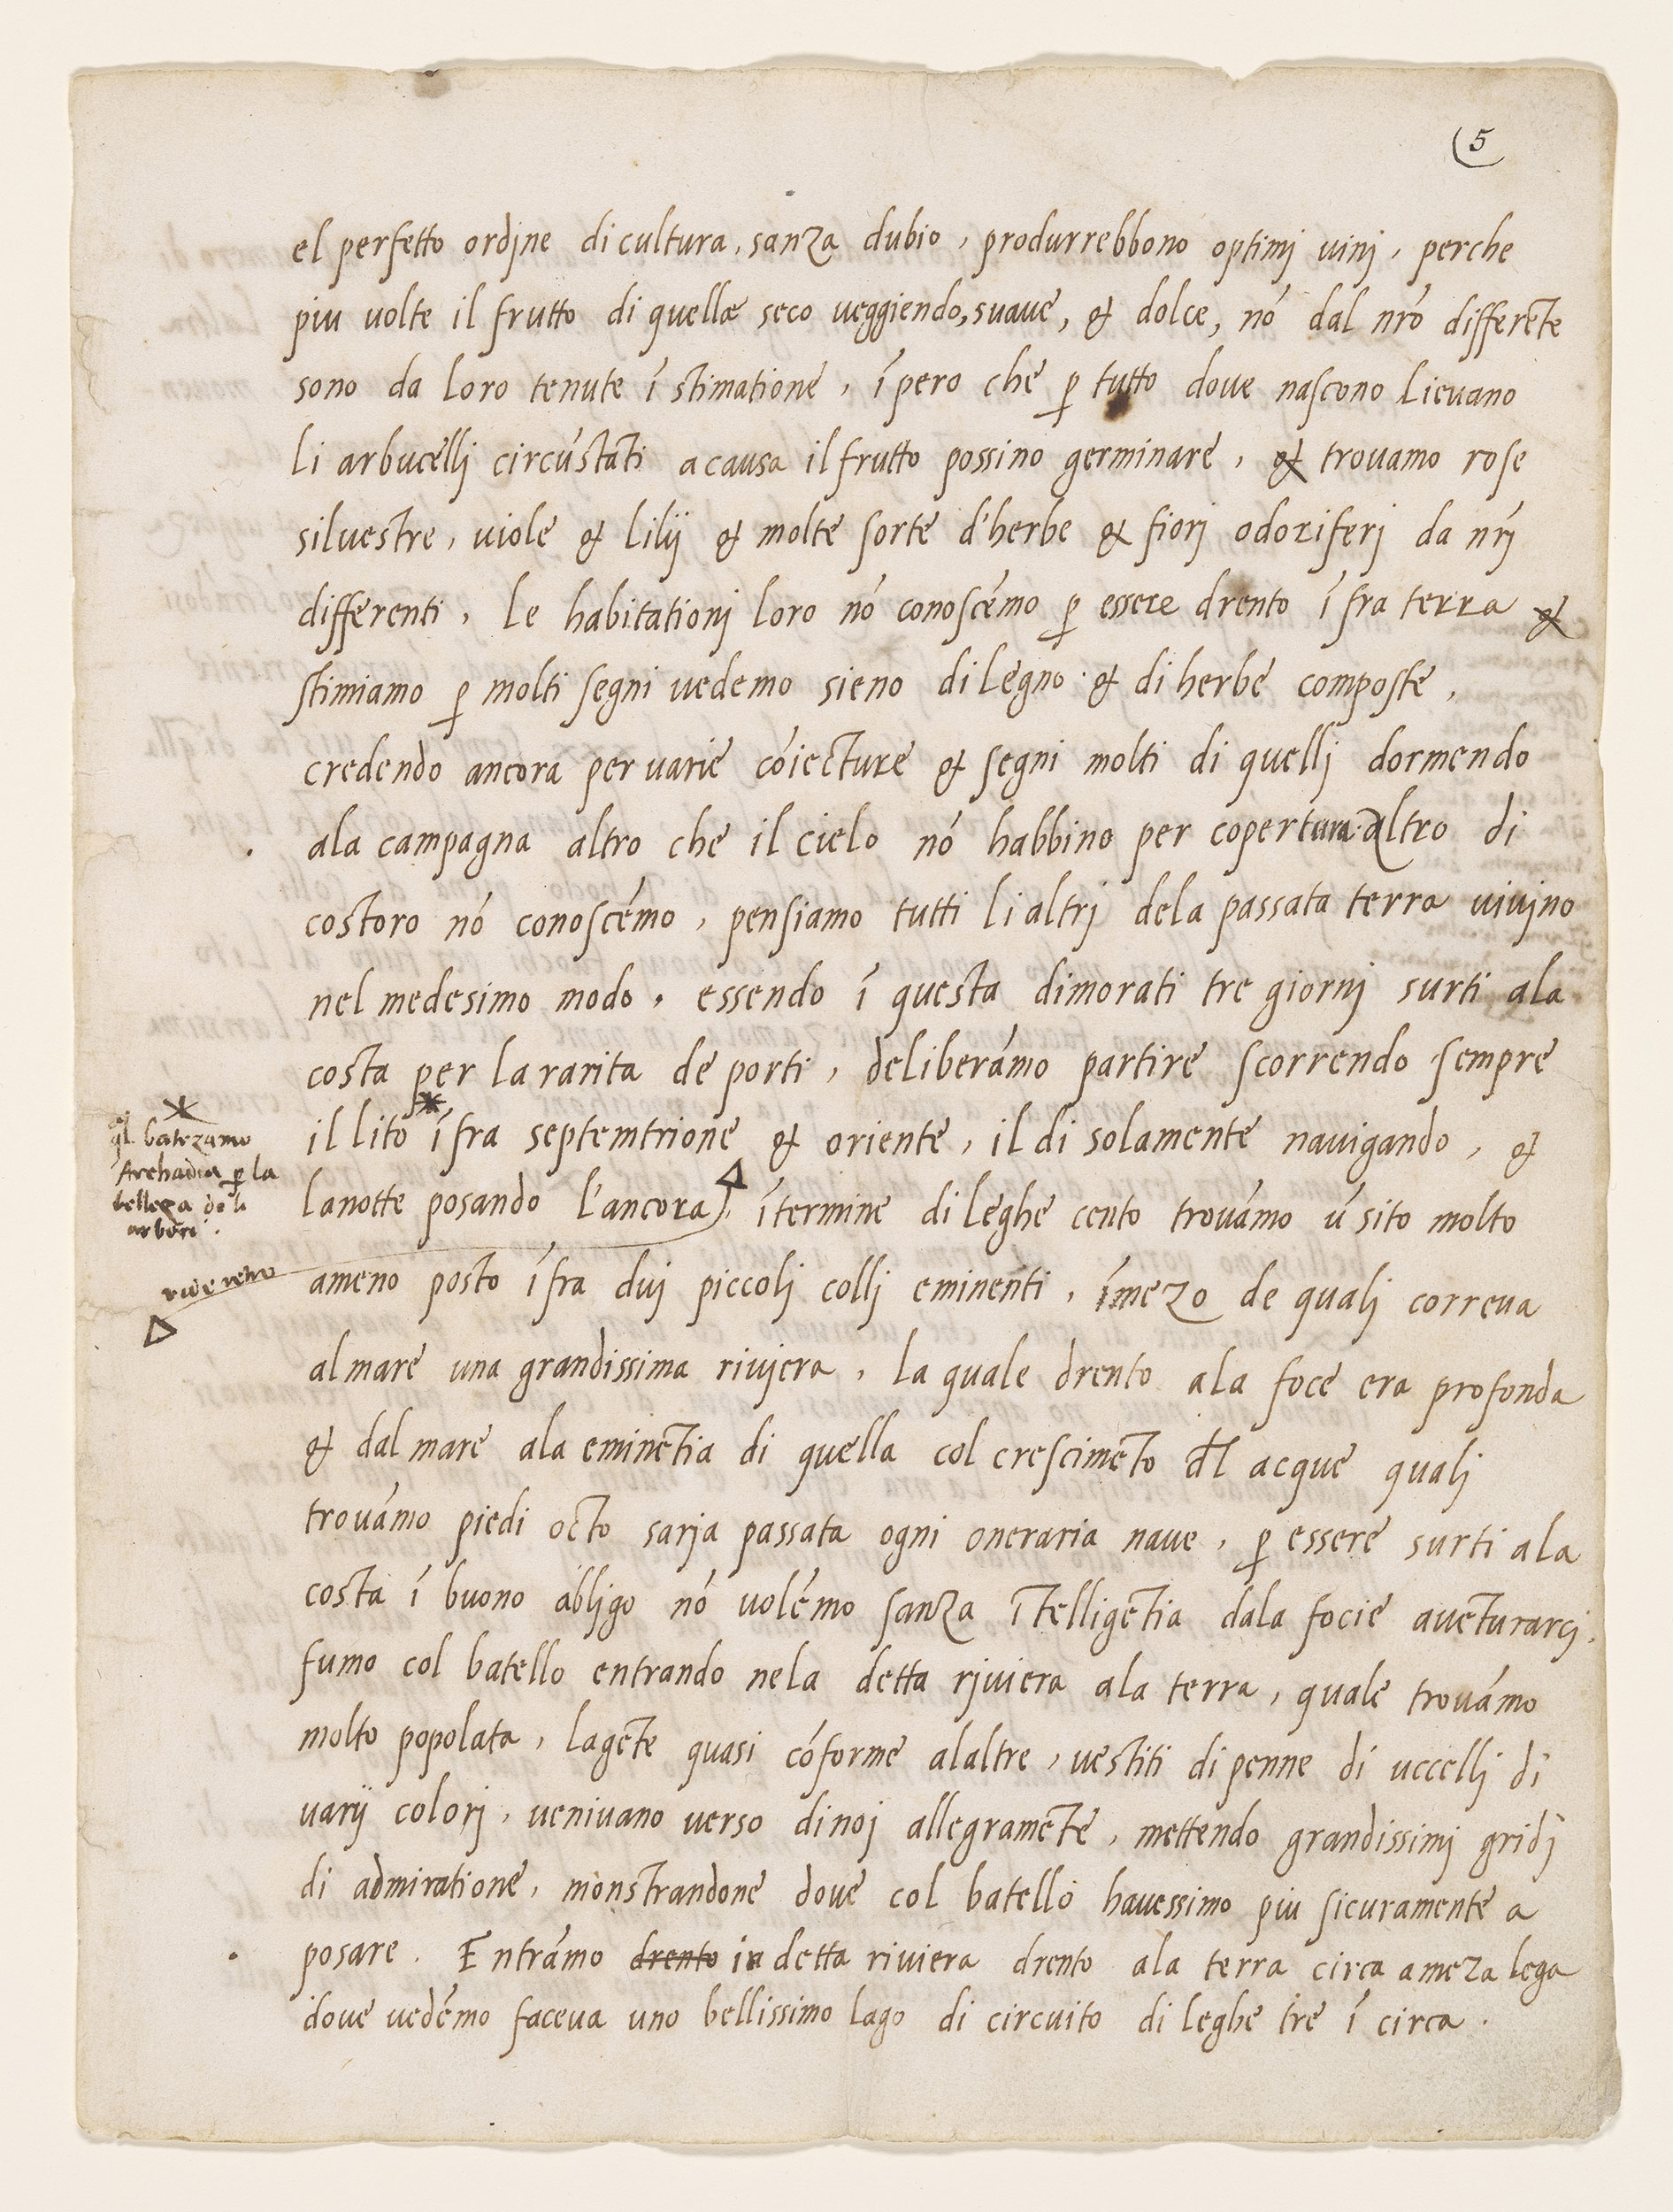 5
el perfetto ordine di cultura, sanza dubio, produrrebbono optimj vinj, perche
piu volte il frutto di quelle seco veggiendo, suave, & dolce, nō dal nrō differēte
sono da loro tenute ī stimatione, īpero che ꝑ tutto dove nascono lievano
li arbucelli circūstāti a causa il frutto possino germinare, & trovamo rose
silvestre, viole & lilij & molte sorte d'herbe & fiorj odoriferj da nrj̄
differenti. Le habitationj loro nō conoscémo ꝑ essere drento ī fra terra &
stimiamo ꝑ molti segni vedemo sieno di legno & di herbe composte,
credendo ancora per varie cōiecture & segni molti di quellj dormendo
ala campagna altro che il cielo nō habbino per copertura. altro di
costoro nō conoscémo, pensiamo tutti li altrj dela passata terra vivino
nel medesimo modo. essendo ī questa dimorati tre giornj surti ala
costa per la rarita de porti, deliberámo partire scorrendo sempre
il lito * ī fra septemtrione & oriente, il di solamente navigando, &
* ql batezamo
Archadia ꝑ la
belleza de li
arbori.
la notte posando l'ancora). ī termine di leghe cento trovámo ū sito molto
vide retro
ameno posto ī fra duj piccoli collj eminenti, ī mezo de qualj correva
al mare una grandissima riviera, la quale drento ala foce era profonda
& dal mare ala eminētia di quella col crescimēto d̄l acque qualj
trovámo piedi octo saria passata ogni oneraria nave. ꝑ essere surti ala
costa ī buono obligo nō volémo sanza ītelligētia dala focie avēturarcj.
fumo col batello entrando nela detta riviera ala terra, quale trovámo
molto popolata, la gēte quasi cōforme al altre, vestiti di penne di uccellj di
varij colorj, venivano verso di noj allegramēte, mettendo grandissimj gridj
di admiratione, monstrandone dove col batello havessimo piu sicuramente a
posare. Entrámo drento in detta riviera drento ala terra circa a meza lega
dove vedémo faceva uno bellissimo lago di circuito di leghe tre ī circa.